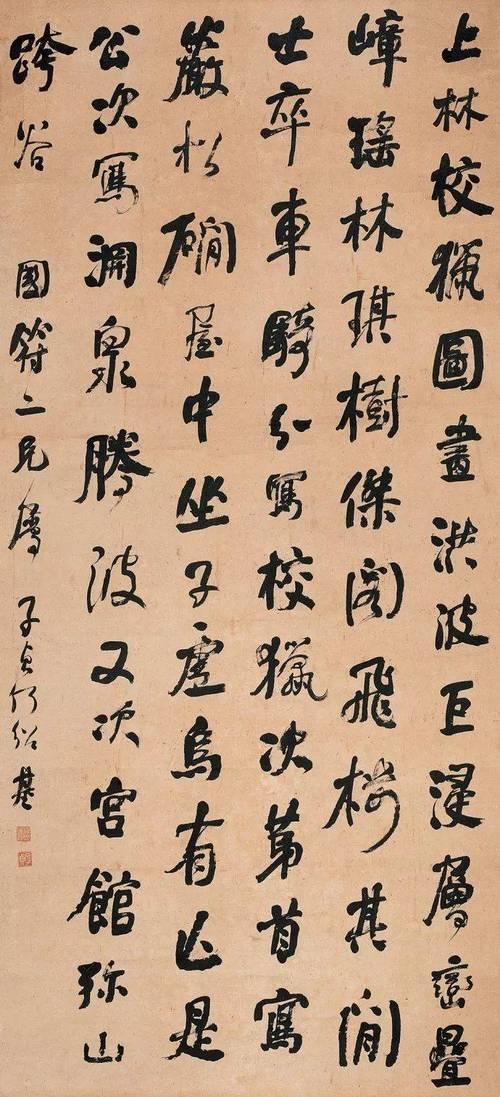 上林校獵圖畫洪波巨浸層巒疊
嶂瑤林琪樹傑閣飛樓其間
士卒車騎分寫校獵次第首寫
巖松磵屋中坐子虛烏有亡是
公次寫湧泉騰波又次宮館彌山
跨谷 國符二兄屬 子貞何紹基